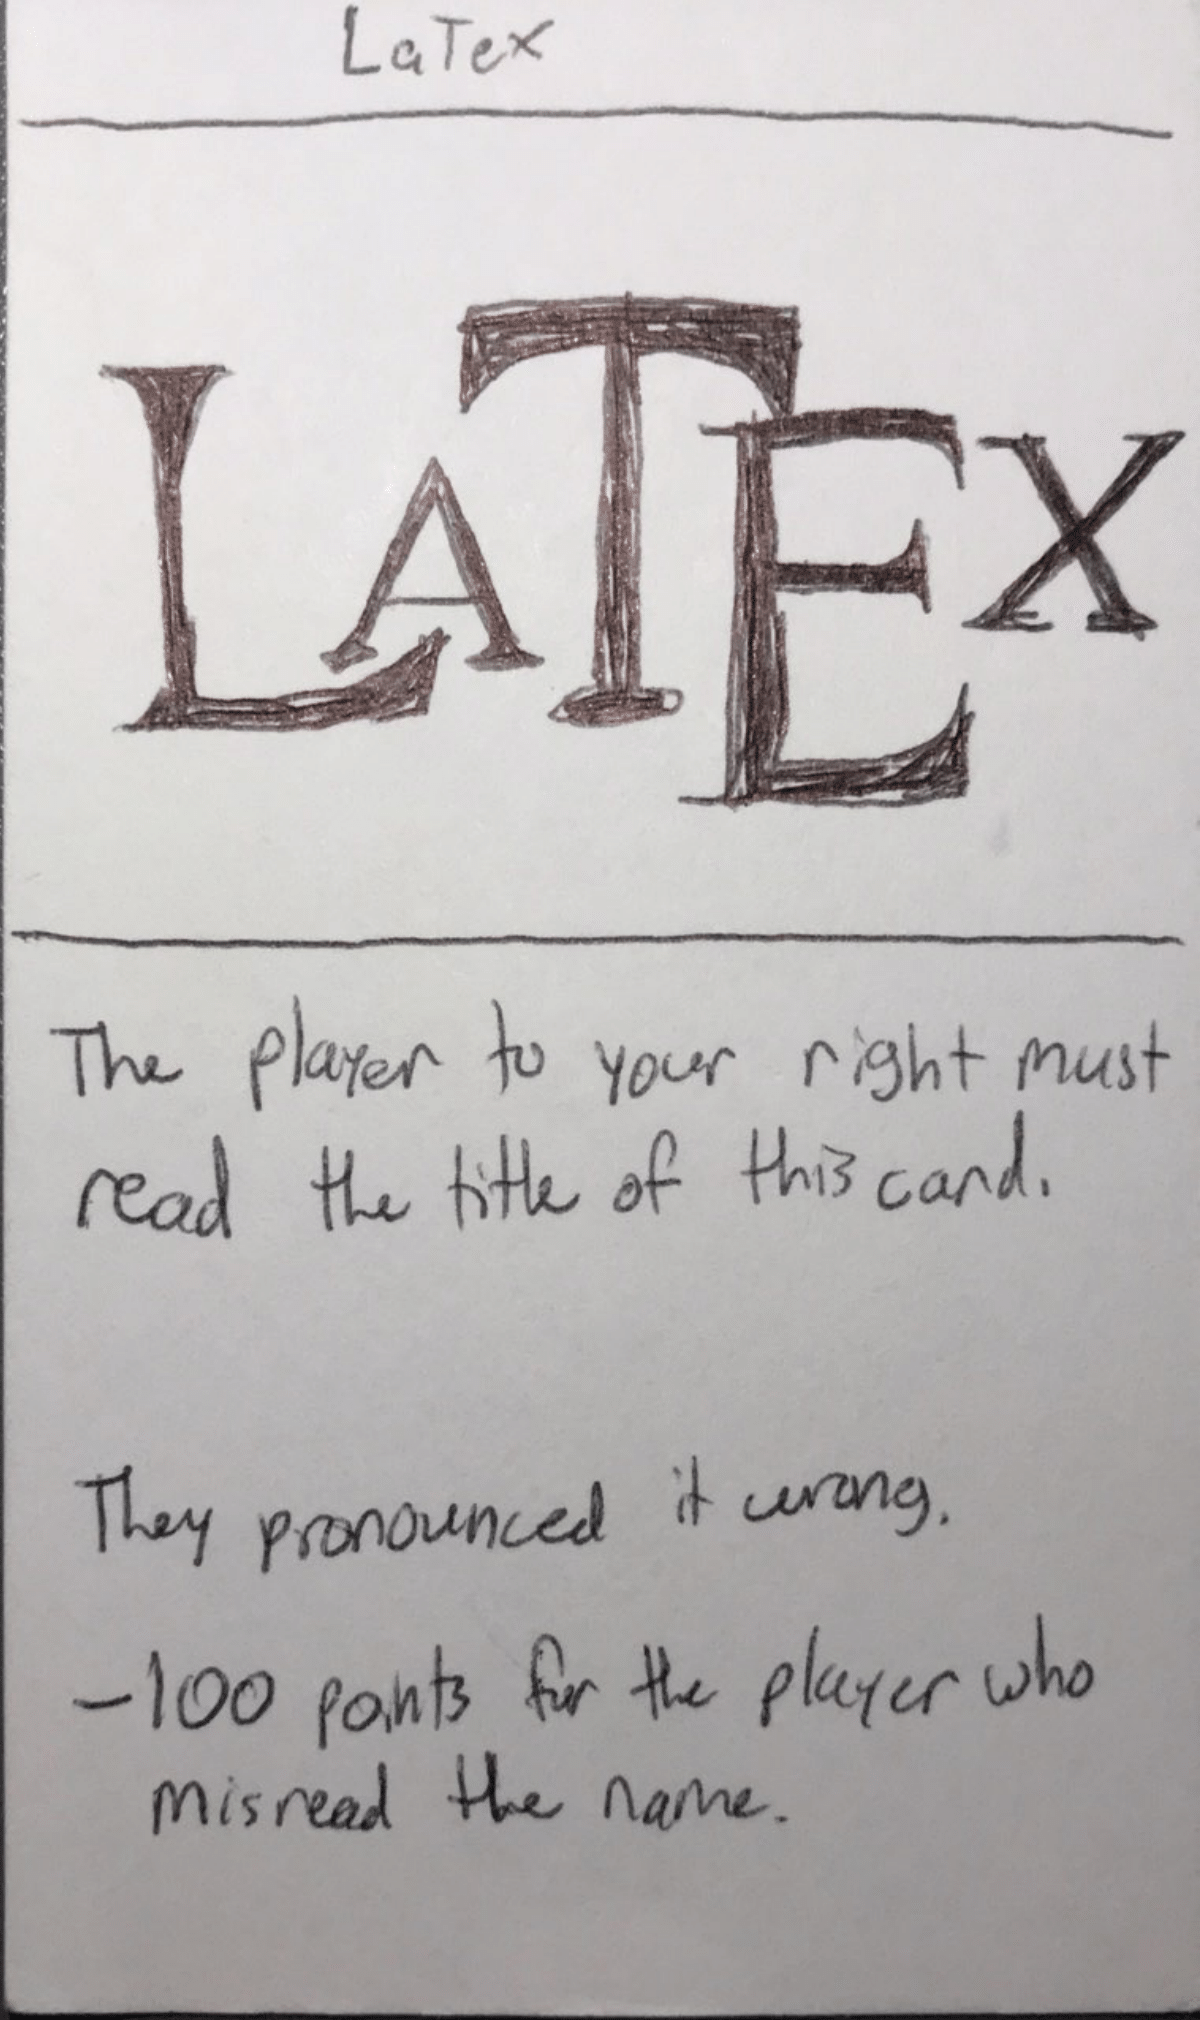 LaTex
LATEX
The player to your right must
read the title of this card.
They pronounced it wrong.
-100 points for the player who
misread the name.